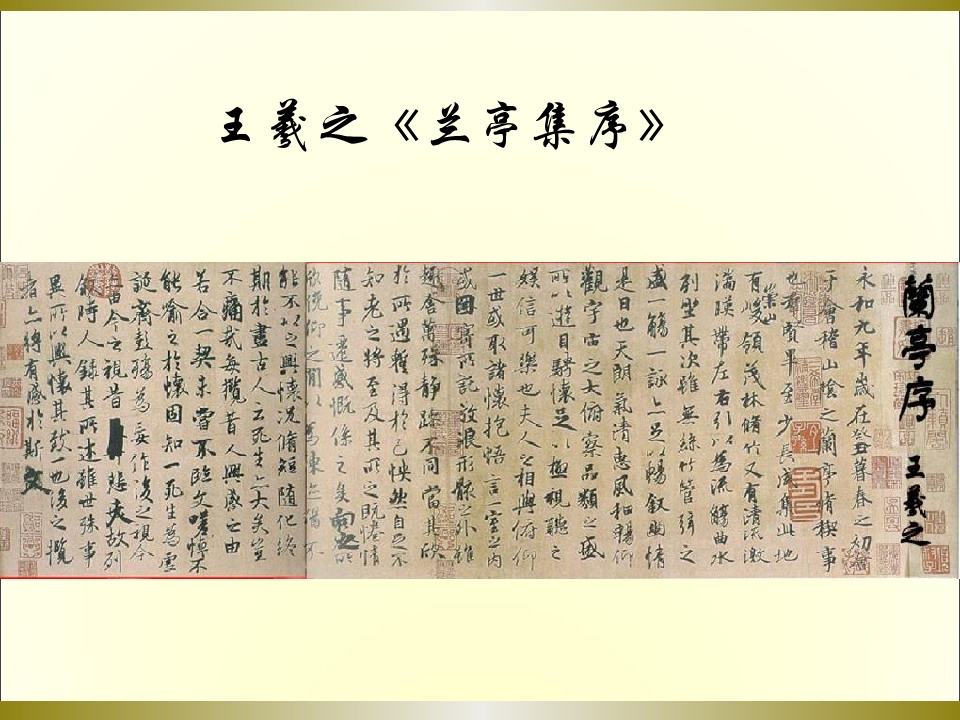 王羲之《兰亭集序》
蘭亭序 王羲之
永和九年歲在癸丑暮春之初會
于會稽山陰之蘭亭脩稧事
也羣賢畢至少長咸集此地
有崇山峻領茂林脩竹又有清流激
湍暎帶左右引以為流觴曲水
列坐其次雖無絲竹管弦之
盛一觴一詠亦足以暢敘幽情
是日也天朗氣清惠風和暢仰
觀宇宙之大俯察品類之盛
所以遊目騁懷足以極視聽之
娛信可樂也夫人之相與俯仰
一世或取諸懷抱悟言一室之內
或因寄所託放浪形骸之外雖
趣舍萬殊靜躁不同當其欣
於所遇暫得於己怏然自足不
知老之將至及其所之既惓情
隨事遷感慨係之矣向之所
欣俛仰之閒以為陳迹猶不
能不以之興懷況脩短隨化終
期於盡古人云死生亦大矣豈
不痛哉每攬昔人興感之由
若合一契未嘗不臨文嗟悼不
能喻之於懷固知一死生為虛
誕齊彭殤為妄作後之視今
亦由今之視昔悲夫故列
敘時人錄其所述雖世殊事
異所以興懷其致一也後之攬
者亦將有感於斯文